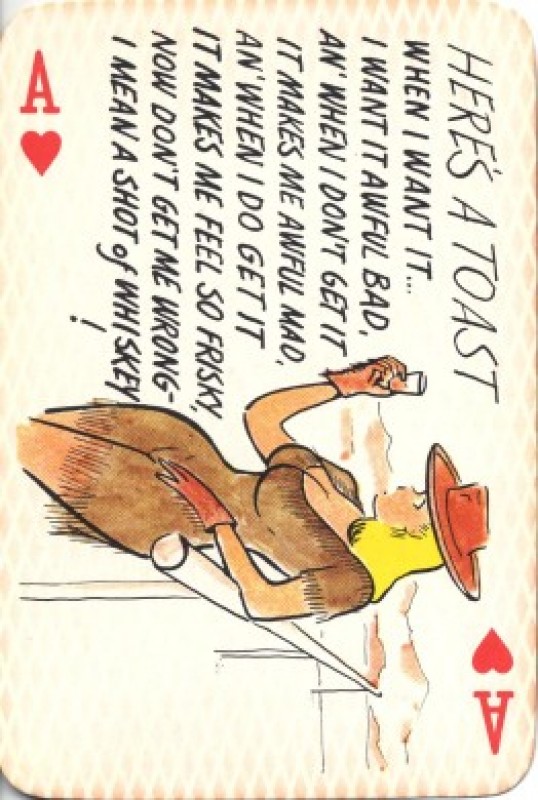 A
HERE'S A TOAST
WHEN I WANT IT...
I WANT IT AWFUL BAD,
AN' WHEN I DON'T GET IT
IT MAKES ME AWFUL MAD,
AN' WHEN I DO GET IT
IT MAKES ME FEEL SO FRISKY,
NOW DON'T GET ME WRONG-
I MEAN A SHOT of WHISKEY!
A